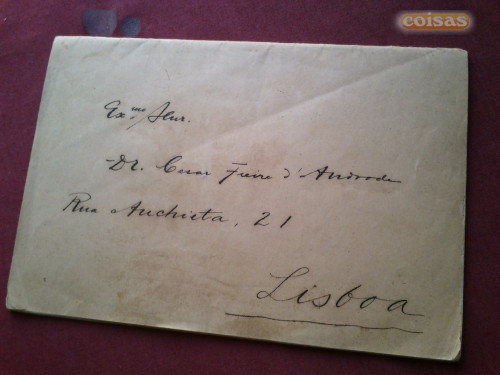 coisas
Ex.mo Snr.
Dr. Cesar Freire d'Andrade
Rua Anchieta, 21
Lisboa